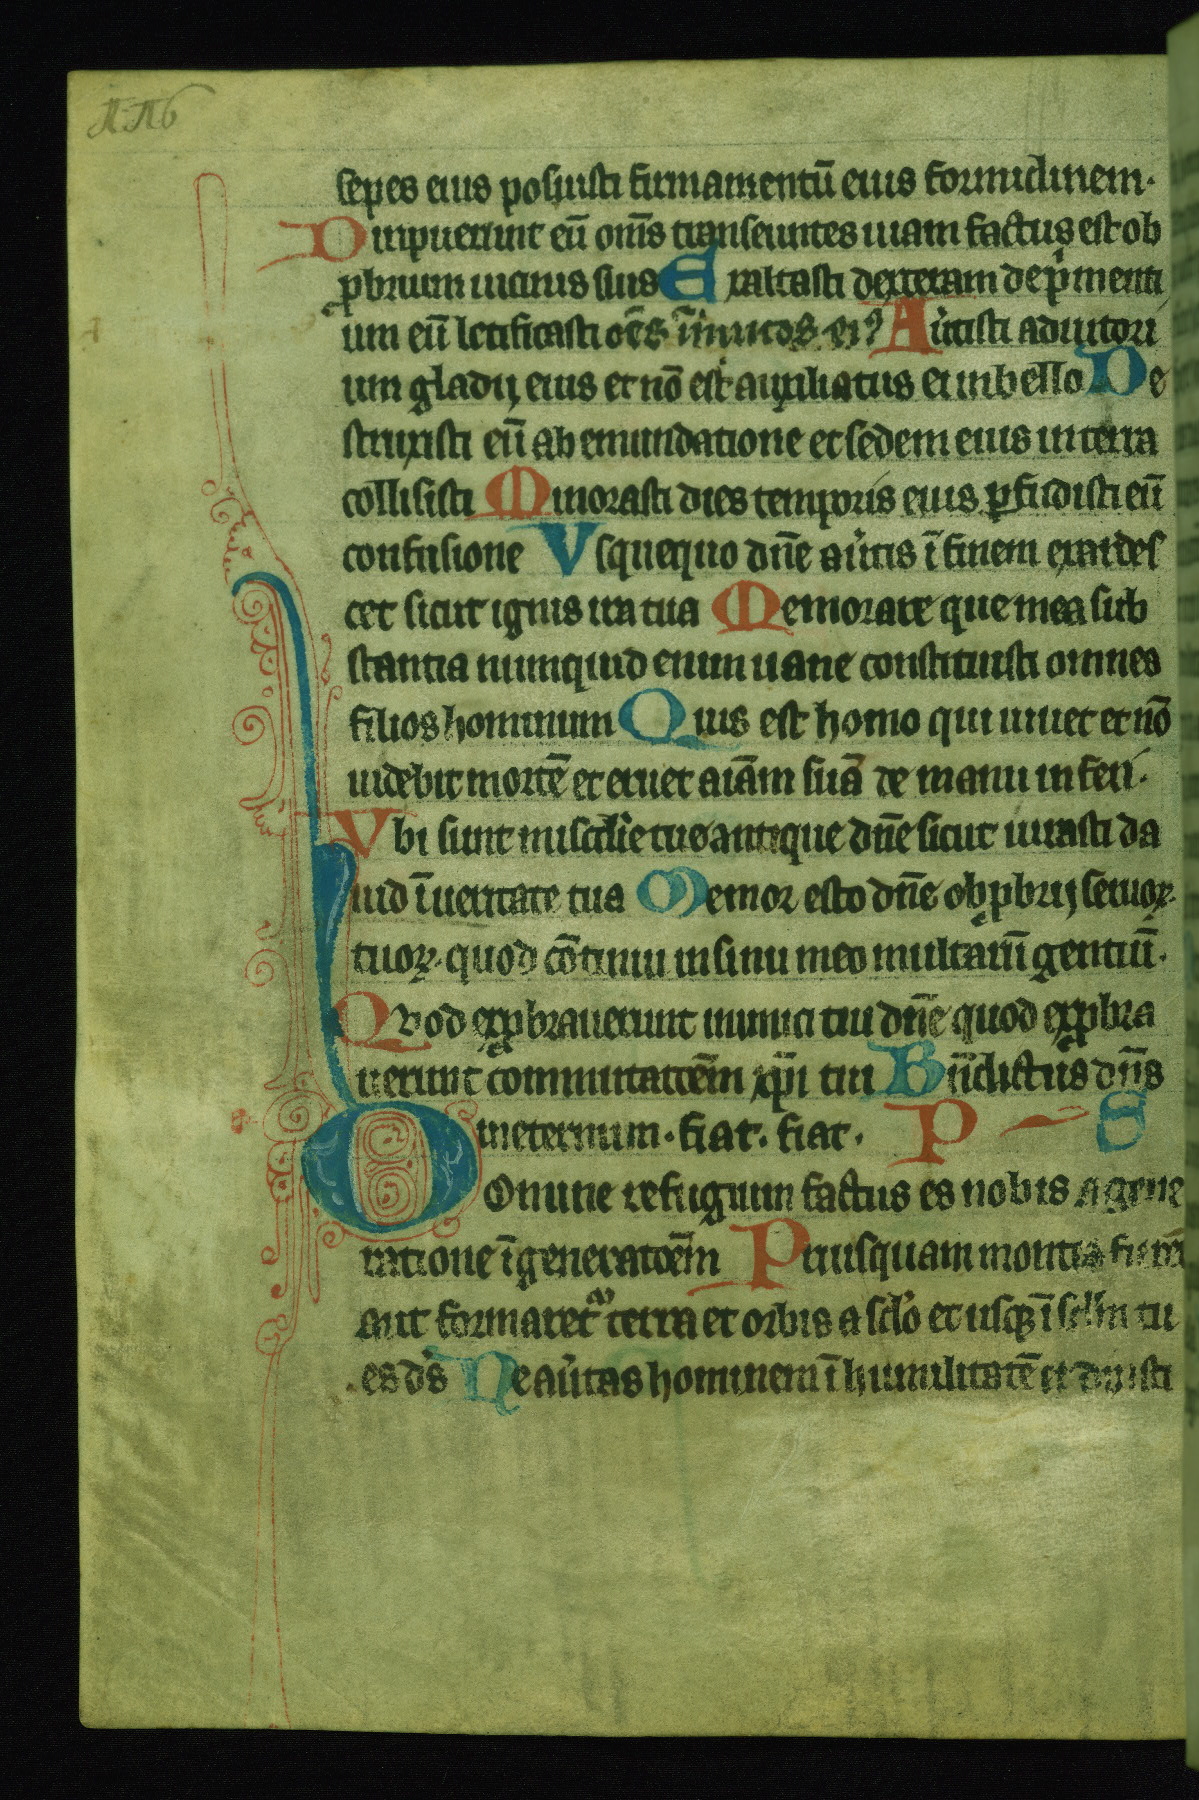 sepes eius posuisti firmamentū eius formidinem·
Diripuerunt eū om̄s transeuntes uiam factus est ob
ꝓbrium uicinis suis Exaltasti dexteram depͥmenti
um eū letificasti oēs īimicos eiꝰ Auͥtisti adiutori
um gladij eius et nō est auxiliatus ei in bello De
struxisti eū ab emundatione et sedem eius in terra
collisisti Minorasti dies temporis eius ꝑfudisti eū
confusione Vsquequo dn̄e auͥtis ī finem exardes
cet sicut ignis ira tua Memorare que mea sub
stantia numquid enim uane constituisti omnes
filios hominum Quis est homo qui uiuet et nō
uidebit mortē et eruet aīam suā de manu inferi·
Vbi sunt mis̄c̄die tue antique dn̄e sicut iurasti da
uid ī ueritate tua Memor esto dn̄e obꝓbrij seruoꝝ
tuoꝝ· quod cōtinui in sinu meo multarū gentiū·
Quod exꝓbrauerunt inimici tui dn̄e quod exꝓbra
uerunt commutatōem xp̄i tui Bn̄dictus dn̄s
in eternum· fiat· fiat· P S
DOmine refugium factus es nobis a gene
ratione ī generatōem Priusquam montes fierēt
aut formaretᷣ terra et orbis a sc̄lo et usqꝫ ī sc̄lm tu
es ds̄ Ne auͥtas hominem ī humilitatē et dixisti